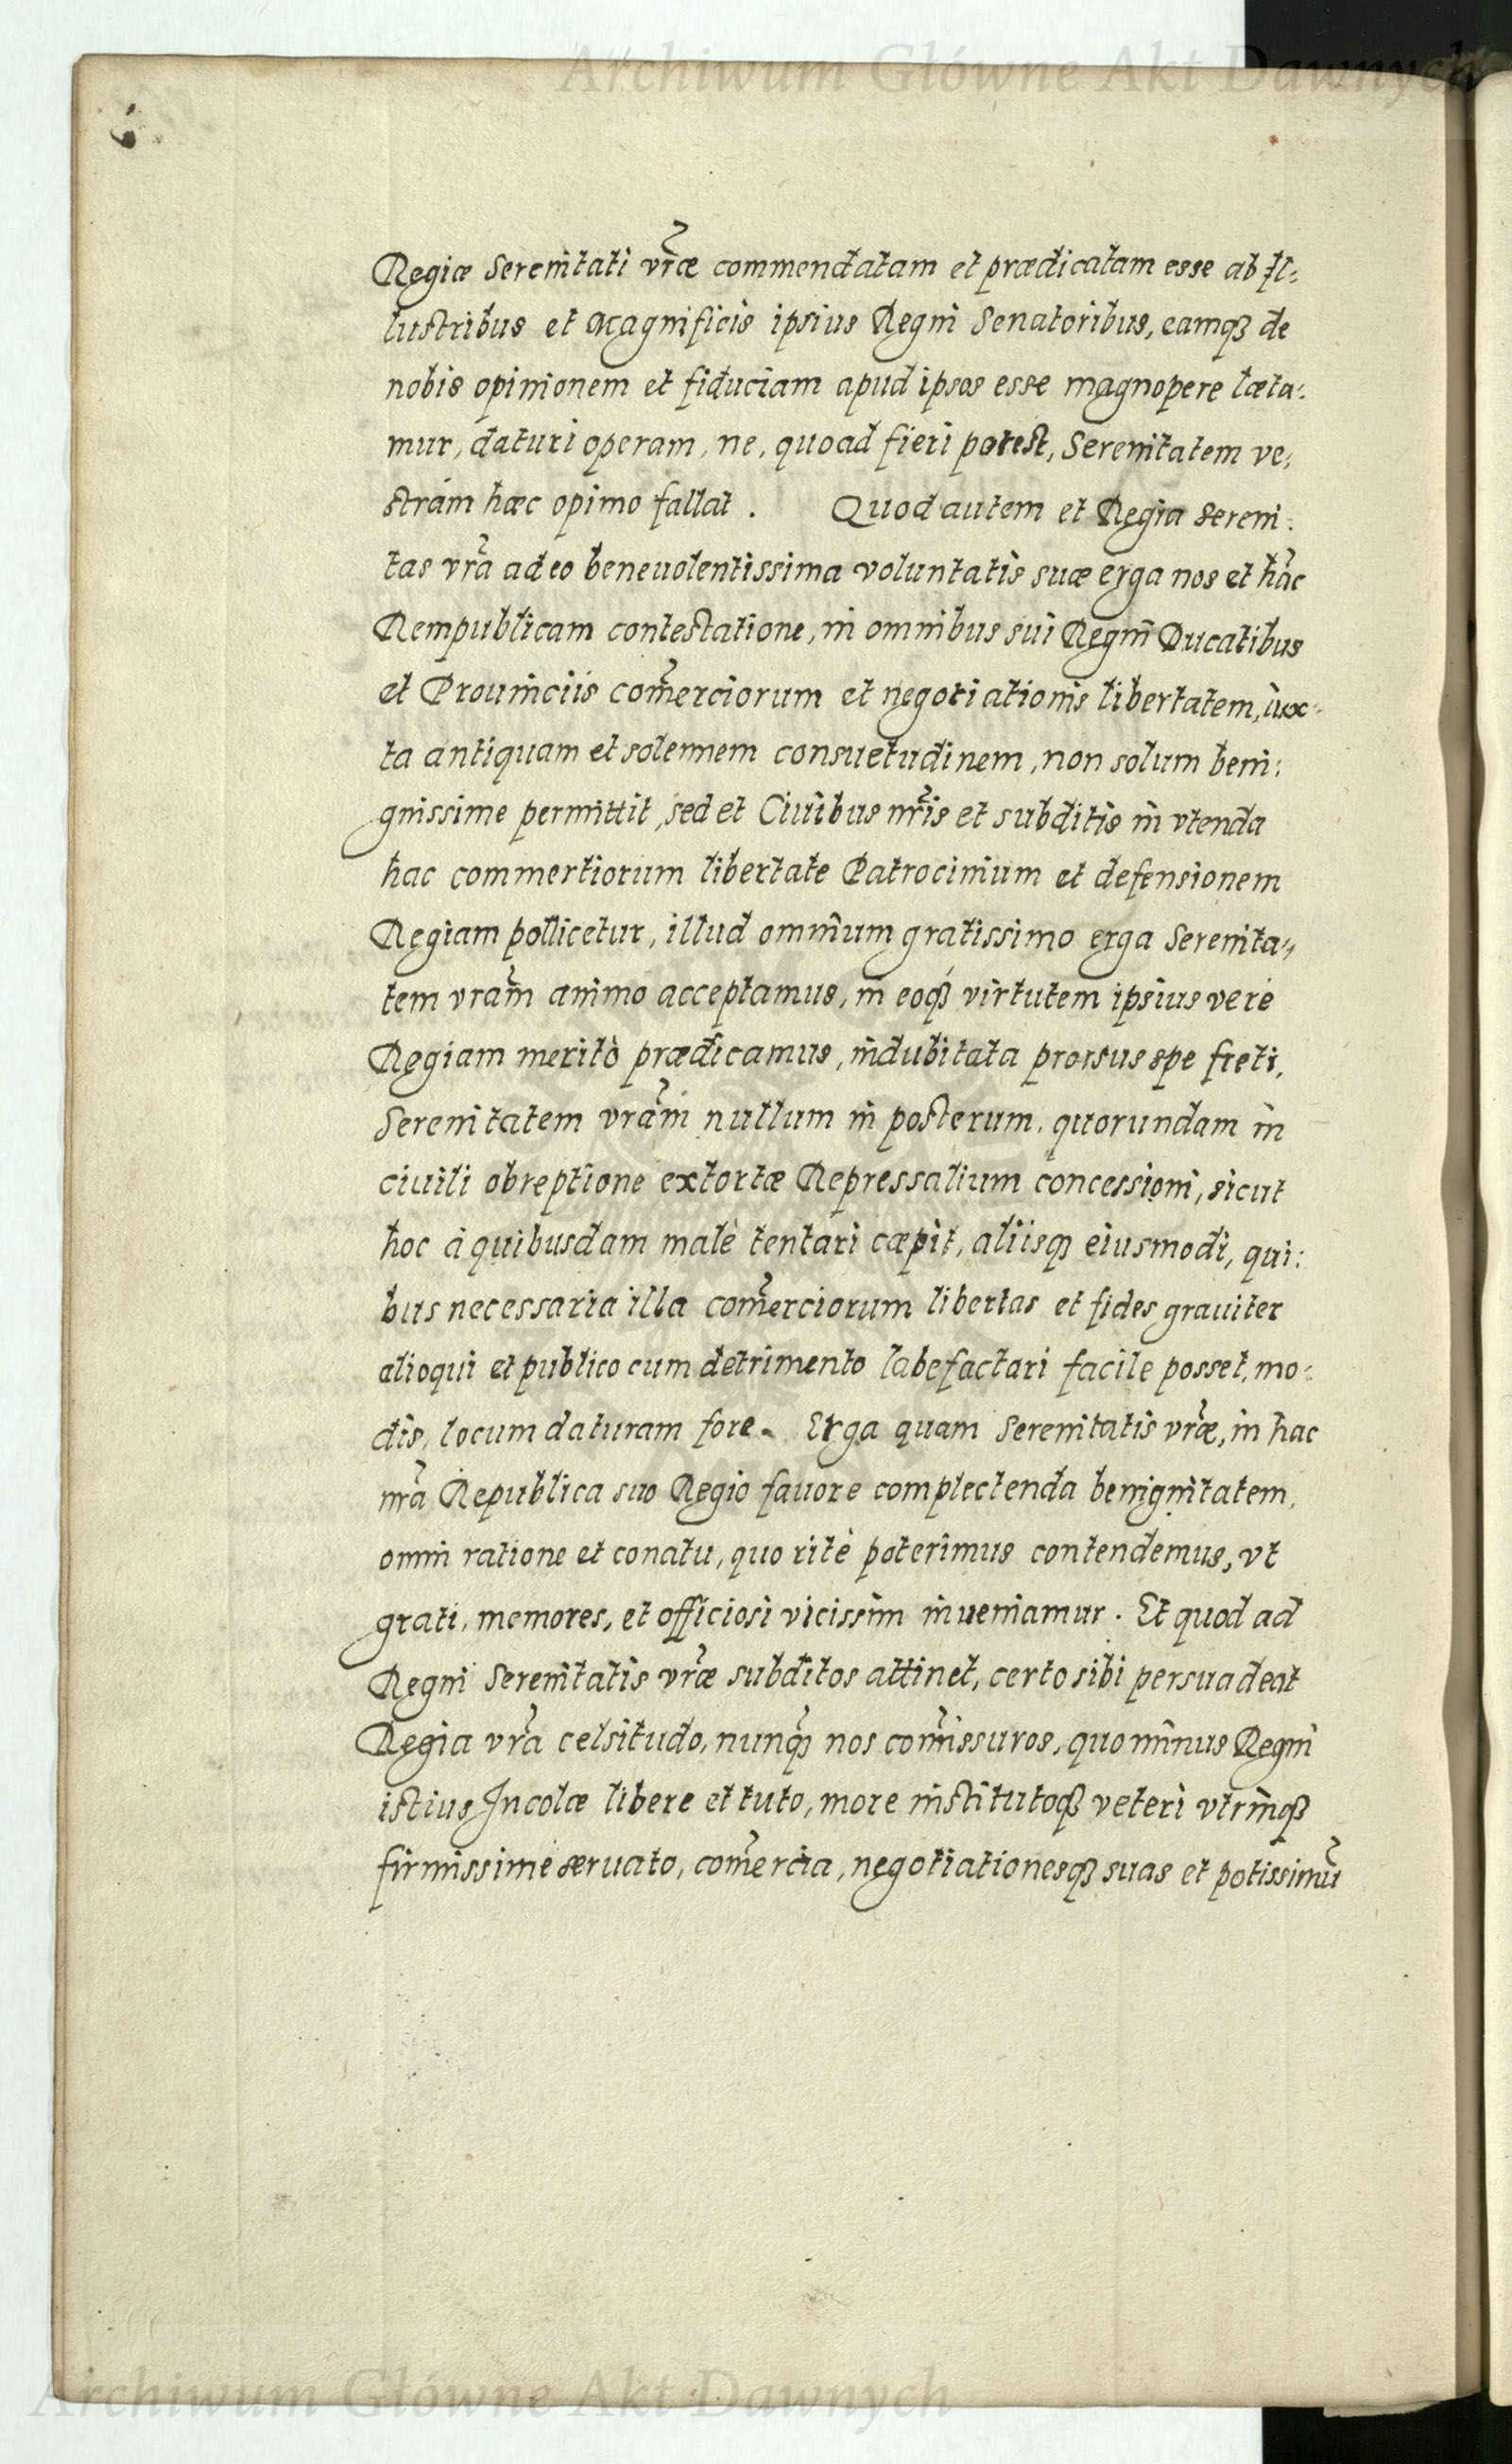 Archiwum Główne Akt Dawnych
Regiæ Serenitati vr̃æ commendatam et prædicatam esse ab Il-
lustribus et Magnificis ipsius Regni Senatoribus, eamqȝ de
nobis opinionem et fiduciam apud ipsos esse magnopere læta-
mur, daturi operam, ne, quoad fieri potest, Serenitatem ve-
stram hæc opinio fallat. Quod autem et Regia Sereni-
tas vr̃a adeo beneuolentissima voluntatis suæ erga nos et hãc
Rempublicam contestatione, in omnibus sui Regni Ducatibus
et Prouinciis com̃erciorum et negotiationis libertatem, iux-
ta antiquam et solennem consuetudinem, non solum beni-
gnissime permittit, sed et Ciuibus nr̃is et subditis in vtenda
hac commertiorum libertate Patrocinium et defensionem
Regiam pollicetur, illud omnium gratissimo erga Serenita-
tem vram̃ animo acceptamus, in eoqȝ virtutem ipsius verè
Regiam meritò prædicamus, indubitata prorsus spe freti,
Serenitatem vram̃ nullum in posterum, quorundam in
ciuili obreptione extortæ Repressalium concessioni, sicut
hoc à quibusdam malè tentari cæpit, aliisqȝ eiusmodi, qui-
bus necessaria illa com̃erciorum libertas et fides grauiter
alioqui et publico cum detrimento labefactari facile posset, mo-
dis, locum daturam fore. Erga quam Serenitatis vr̃æ, in hac
nr̃a Republica suo Regio fauore complectenda benignitatem,
omni ratione et conatu, quo ritè poterimus contendemus, vt
grati, memores, et officiosi vicissim inueniamur. Et quod ad
Regni Serenitatis vr̃æ subditos attinet, certo sibi persuadeat
Regia vr̃a celsitudo, nunqȝ̃ nos com̃issuros, quominus Regni
istius Incolæ libere et tuto, more institutoqȝ veteri vtrinqȝ
firmissimè seruato, com̃ercia, negotiationesqȝ suas et potissimũ
Archiwum Główne Akt Dawnych